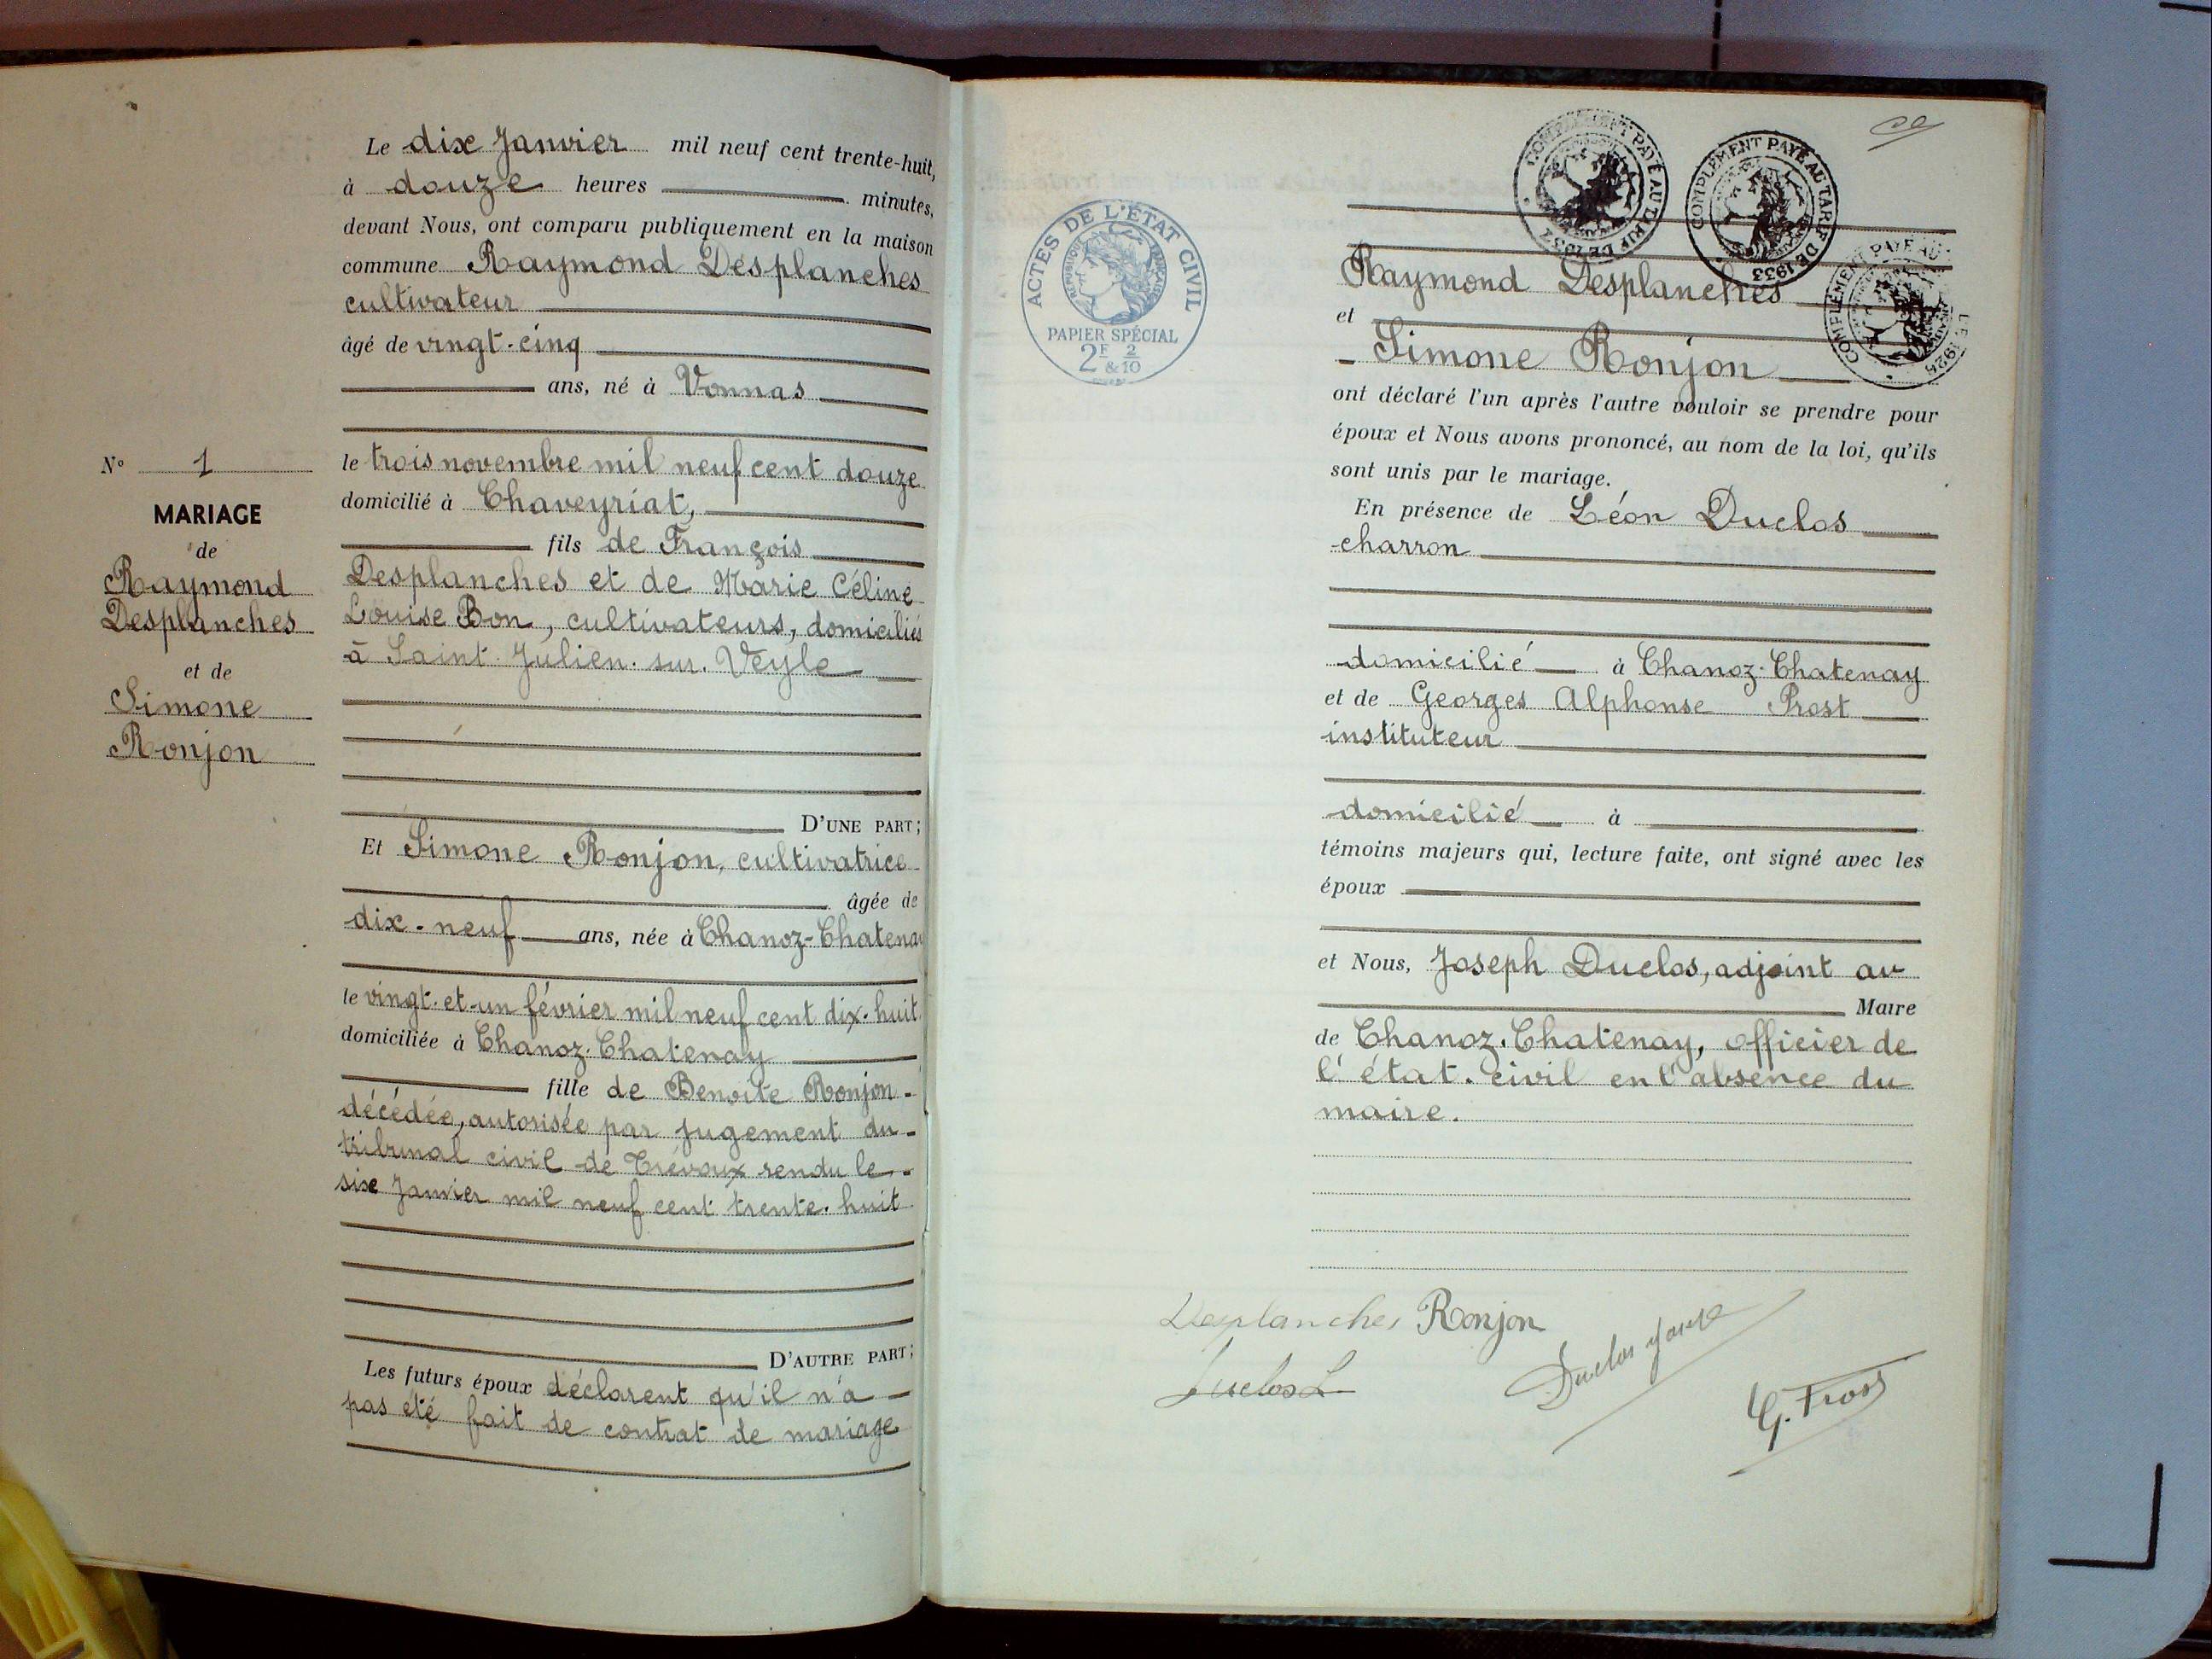 Le dix Janvier mil neuf cent trente-huit,
à douze heures minutes,
devant Nous, ont comparu publiquement en la maison
commune Raymond Desplanches
cultivateur
âgé de vingt-cinq
ans, né à Vonnas
le trois novembre mil neuf cent douze
domicilié à Chaveyriat,
fils de François
Desplanches et de Marie Céline
Louise Bon, cultivateurs, domiciliés
à Saint-Julien-sur-Veyle
D'UNE PART;
Et Simone Ronjon, cultivatrice
âgée de
dix-neuf ans, née à Chanoz-Chatenay
le vingt-et-un février mil neuf cent dix-huit
domiciliée à Chanoz-Chatenay
fille de Benoite Ronjon
décédée, autorisée par jugement du
tribunal civil de Trévoux rendu le
six Janvier mil neuf cent trente-huit
D'AUTRE PART;
Les futurs époux déclarent qu'il n'a
pas été fait de contrat de mariage
N° 1
MARIAGE
de
Raymond
Desplanches
et de
Simone
Ronjon
ACTES DE L'ÉTAT CIVIL
RÉPUBLIQUE FRANÇAISE
PAPIER SPÉCIAL
2F & 2/10
COMPLÉMENT PAYÉ AU TARIF DE 1937
COMPLÉMENT PAYÉ AU TARIF DE 1933
COMPLÉMENT PAYÉ AU
Raymond Desplanches
et
Simone Ronjon
ont déclaré l'un après l'autre vouloir se prendre pour
époux et Nous avons prononcé, au nom de la loi, qu'ils
sont unis par le mariage.
En présence de Léon Duclos
charron
domicilié à Chanoz-Chatenay
et de Georges Alphonse Prost
instituteur
domicilié à
témoins majeurs qui, lecture faite, ont signé avec les
époux
et Nous, Joseph Duclos, adjoint au
Maire
de Chanoz-Chatenay, officier de
l'état-civil en l'absence du
maire.
Desplanches Ronjon
Duclos L
Duclos Joseph
G. Prost